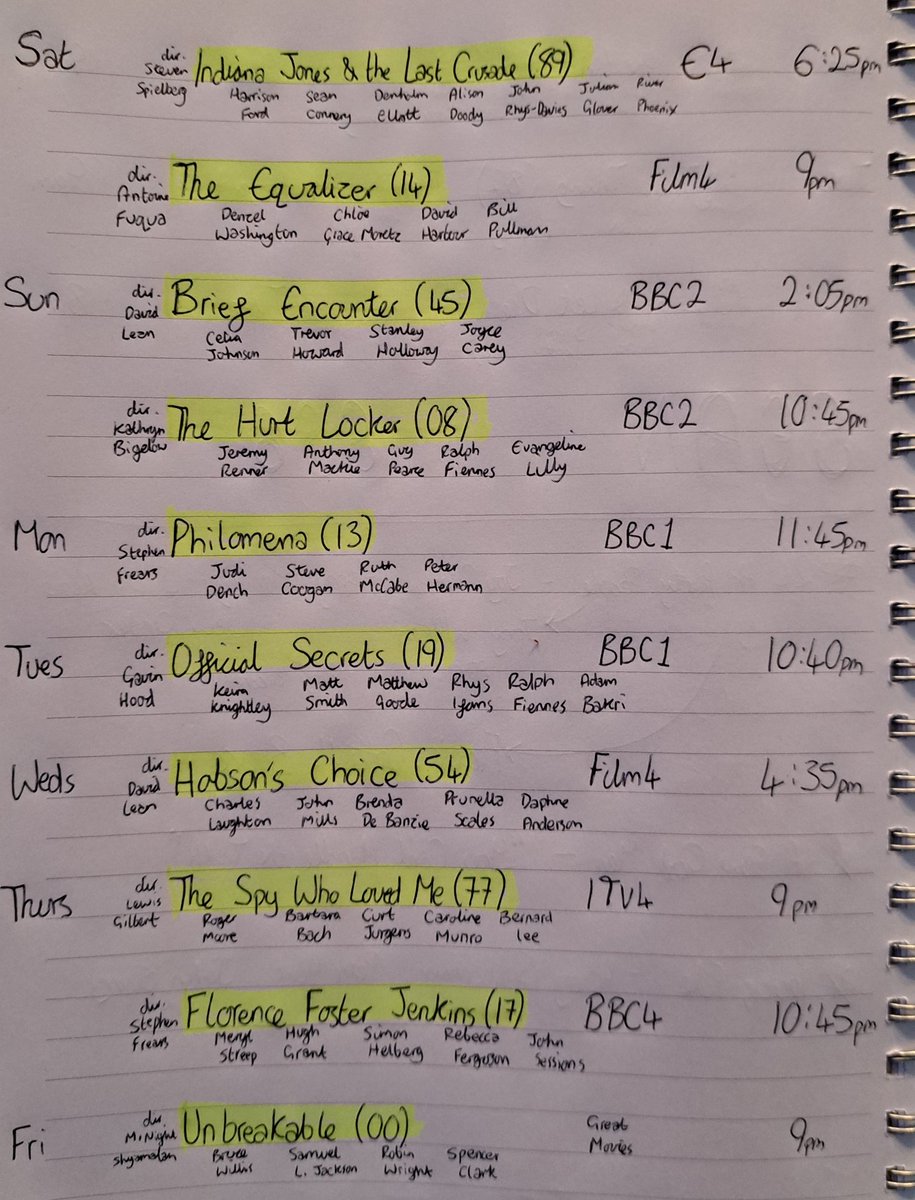 Sat dir. Steven Spielberg Indiana Jones & the Last Crusade (89) E4 6:25pm
Harrison Ford Sean Connery Denholm Elliott Alison Doody John Rhys-Davies Julian Glover River Phoenix
dir. Antoine Fuqua The Equalizer (14) Film4 9pm
Denzel Washington Chloë Grace Moretz David Harbour Bill Pullman
Sun dir. David Lean Brief Encounter (45) BBC2 2:05pm
Celia Johnson Trevor Howard Stanley Holloway Joyce Carey
dir. Kathryn Bigelow The Hurt Locker (08) BBC2 10:45pm
Jeremy Renner Anthony Mackie Guy Pearce Ralph Fiennes Evangeline Lilly
Mon dir. Stephen Frears Philomena (13) BBC1 11:45pm
Judi Dench Steve Coogan Ruth McCabe Peter Hermann
Tues dir. Gavin Hood Official Secrets (19) BBC1 10:40pm
Keira Knightley Matt Smith Matthew Goode Rhys Ifans Ralph Fiennes Adam Bakri
Weds dir. David Lean Hobson's Choice (54) Film4 4:35pm
Charles Laughton John Mills Brenda De Banzie Prunella Scales Daphne Anderson
Thurs dir. Lewis Gilbert The Spy Who Loved Me (77) ITV4 9pm
Roger Moore Barbara Bach Curt Jurgens Caroline Munro Bernard Lee
dir. Stephen Frears Florence Foster Jenkins (17) BBC4 10:45pm
Meryl Streep Hugh Grant Simon Helberg Rebecca Ferguson John Sessions
Fri dir. M. Night Shyamalan Unbreakable (00) Great Movies 9pm
Bruce Willis Samuel L. Jackson Robin Wright Spencer Clark